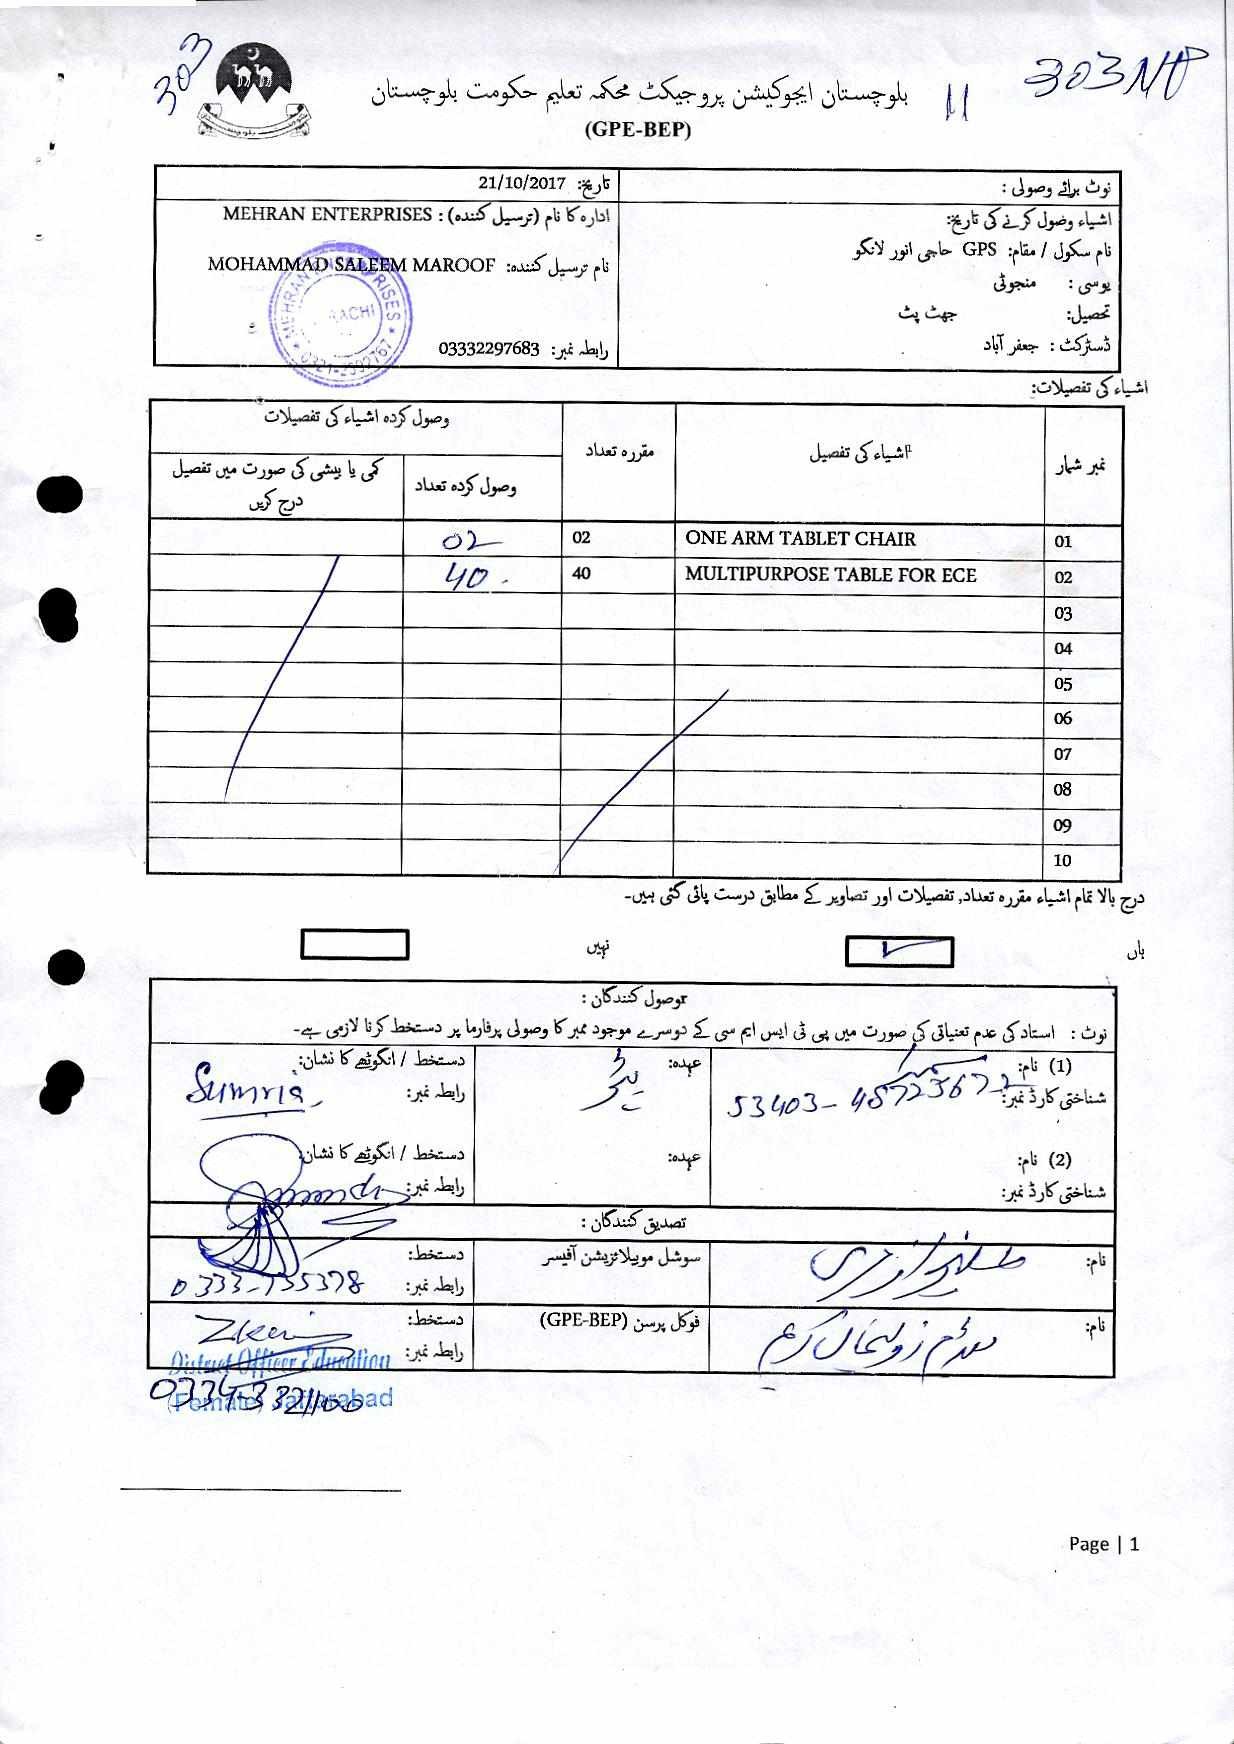 303
303 NP
11
بلوچستان ایجوکیشن پروجیکٹ محکمہ تعلیم حکومت بلوچستان
(GPE-BEP)
نوٹ برائے وصولی :
تاریخ: 21/10/2017
اشیاء وضول کرنے کی تاریخ:
نام سکول / مقام: GPS حاجی انور لانگو
یوسی : منجوٹی
تحصیل: جھٹ پٹ
ڈسٹرکٹ : جعفر آباد
ادارہ کا نام (ترسیل کنندہ) : MEHRAN ENTERPRISES
نام ترسیل کنندہ: MOHAMMAD SALEEM MAROOF
رابطہ نمبر: 03332297683
MEHRAN ENTERPRISES
اشیاء کی تفصیلات:
نمبر شمار
اشیاء کی تفصیل
مقررہ تعداد
وصول کردہ اشیاء کی تفصیلات
وصول کردہ تعداد
کمی یا بیشی کی صورت میں تفصیل درج کریں
01 ONE ARM TABLET CHAIR 02 02
02 MULTIPURPOSE TABLE FOR ECE 40 40
03
04
05
06
07
08
09
10
درج بالا تمام اشیاء مقررہ تعداد, تفصیلات اور تصاویر کے مطابق درست پائی گئی ہیں۔
ہاں
نہیں
وصول کنندگان :
نوٹ : استاد کی عدم تعنیاتی کی صورت میں پی ٹی ایس ایم سی کے دوسرے موجود ممبر کا وصولی پرفارما پر دستخط کرنا لازمی ہے۔
(1) نام:
عہدہ:
دستخط / انگوٹھے کا نشان:
شناختی کارڈ نمبر:
رابطہ نمبر:
(2) نام:
عہدہ:
دستخط / انگوٹھے کا نشان:
شناختی کارڈ نمبر:
رابطہ نمبر:
تصدیق کنندگان :
نام:
سوشل موبیلائزیشن آفیسر
دستخط:
رابطہ نمبر:
نام:
فوکل پرسن (GPE-BEP)
دستخط:
رابطہ نمبر:
District Officer Education
(Female) Jaffarabad
Page | 1